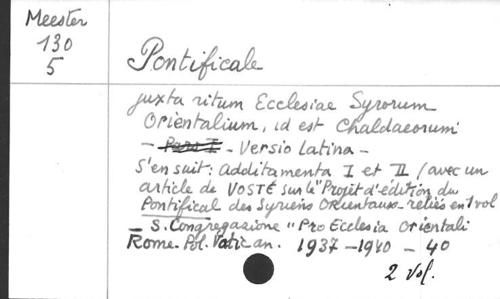 Meester
130
5
Pontificale
juxta ritum Ecclesiae Syrorum
Orientalium, id est Chaldaeorum
- Pars I - Versio Latina -
S'en suit: Additamenta I et II (avec un
article de VOSTÉ sur le "Projet d'édition du
Pontifical des Syriens Orientaux - reliés en 1 vol
- S. Congregazione "Pro Ecclesia Orientali
Rome. Pol. Vatican. 1937 - 1940 - 40
2 vol.